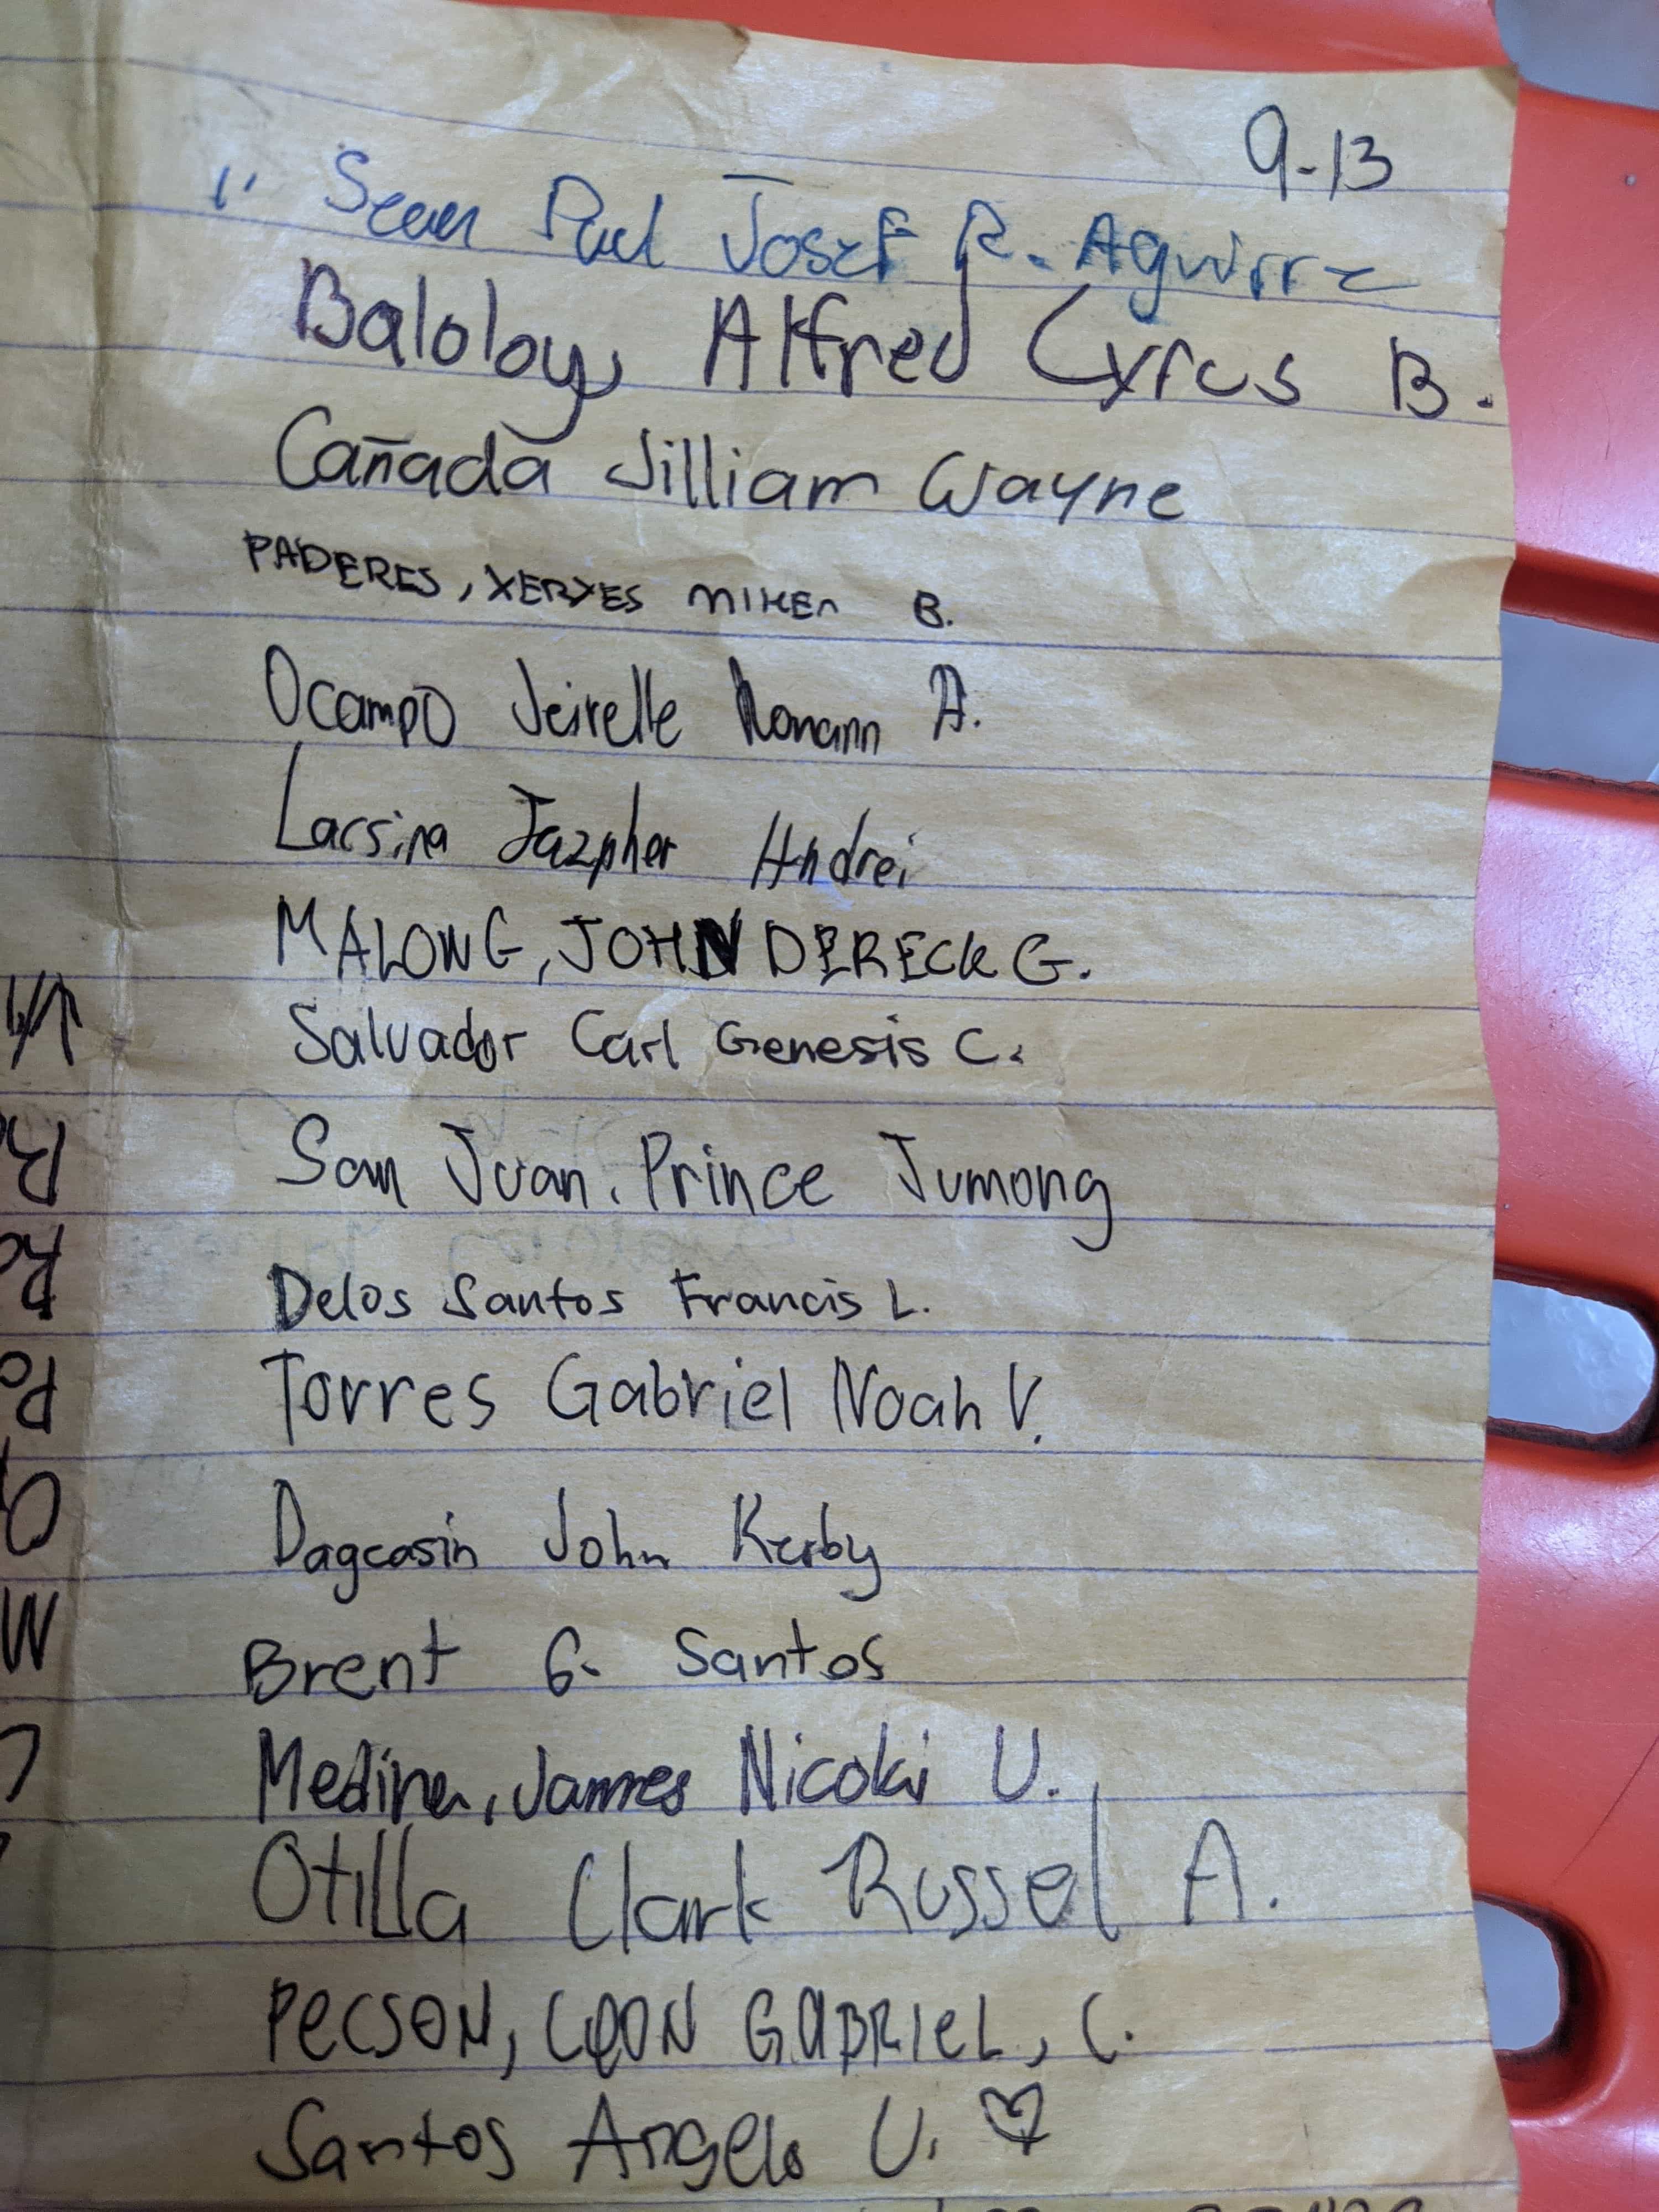 9-13
Sean Paul Josef R. Aguirre
Baloloy, Alfred Cyrus B.
Cañada Jilliam Wayne
PADERES, XERXES MIKEA B.
Ocampo Jeirelle Romann A.
Lacsina Jazpher Andrei
MALONG, JOHN DERECK G.
Salvador Carl Genesis C.
San Juan, Prince Jumong
Delos Santos Francis L.
Torres Gabriel Noah V.
Dagcasin John Kerby
Brent G. Santos
Medina, James Nicolai U.
Otilla Clark Russel A.
PECSON, LEON GABRIEL, C.
Santos Angelo U.